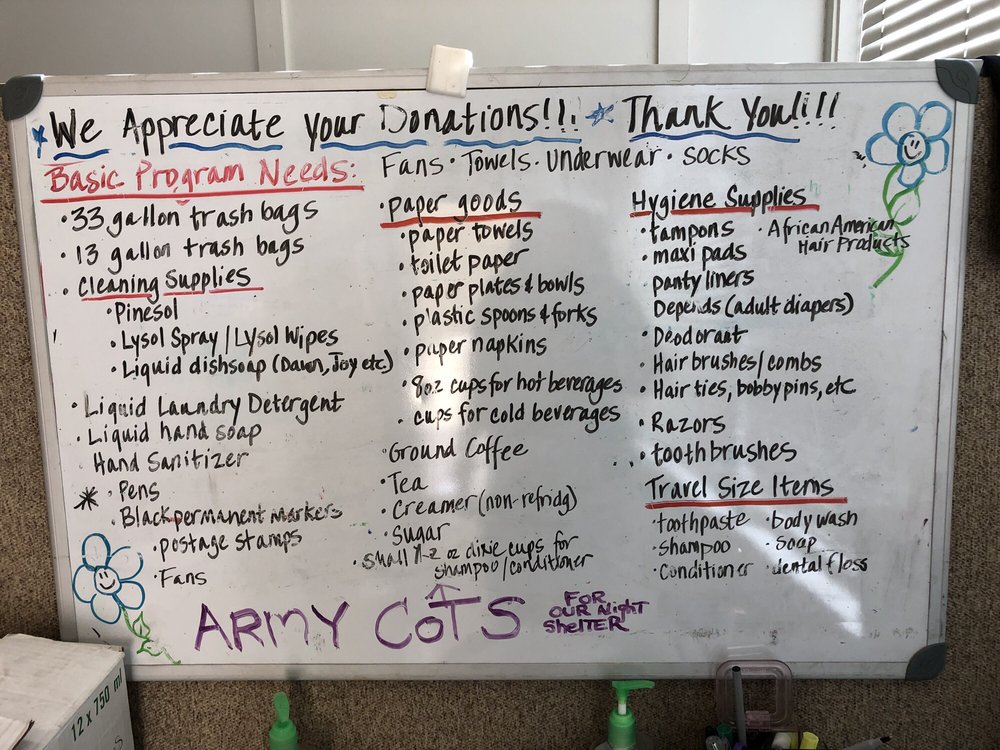 We Appreciate your Donations!!! Thank You!!!!
Basic Program Needs: Fans · Towels · Underwear · socks
· 33 gallon trash bags
· 13 gallon trash bags
· Cleaning Supplies
· Pinesol
· Lysol Spray / Lysol Wipes
· Liquid dishsoap (Dawn, Joy etc)
· Liquid Laundry Detergent
· Liquid hand soap
Hand Sanitizer
· Pens
· Black permanent markers
· postage stamps
· Fans
· paper goods
· paper towels
· toilet paper
· paper plates & bowls
· plastic spoons & forks
· paper napkins
· 8oz cups for hot beverages
· cups for cold beverages
· Ground Coffee
· Tea
· Creamer (non-refridg)
· sugar
· small 1-2 oz dixie cups for
shampoo/conditioner
Hygiene Supplies
· tampons · African American
Hair Products
· maxi pads
· panty liners
Depends (adult diapers)
· Deodorant
· Hair brushes/combs
· Hair ties, bobby pins, etc
· Razors
· toothbrushes
Travel Size Items
· toothpaste · body wash
· shampoo · soap
· Conditioner · dental floss
ARMY COTS FOR
OUR Night
SHELTER
12 x 750 ml